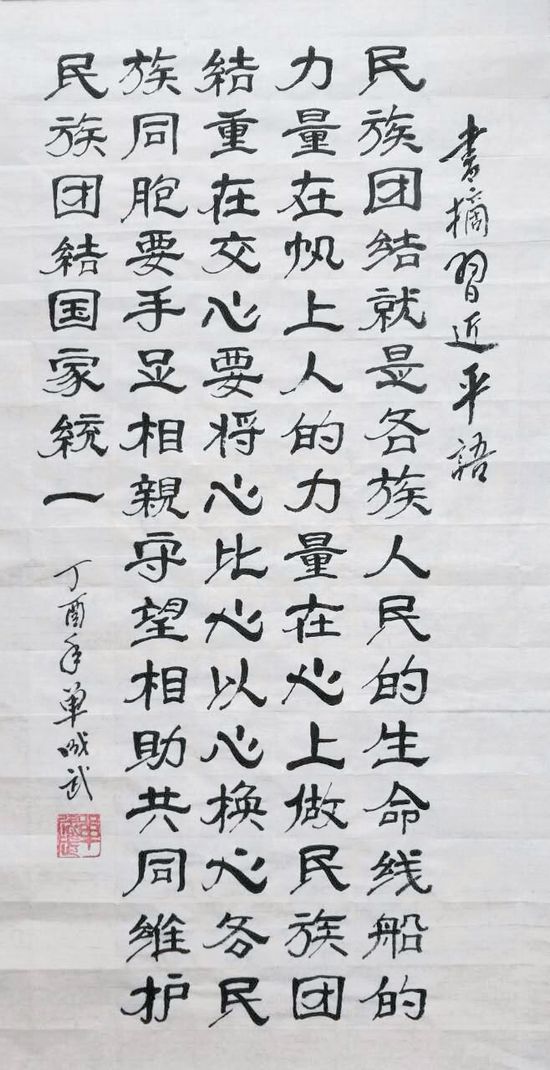 書摘習近平語
民族团结就是各族人民的生命线船的
力量在帆上人的力量在心上做民族团
結重在交心要将心比心以心换心各民
族同胞要手足相親守望相助共同维护
民族团結国家統一
丁酉年单成武